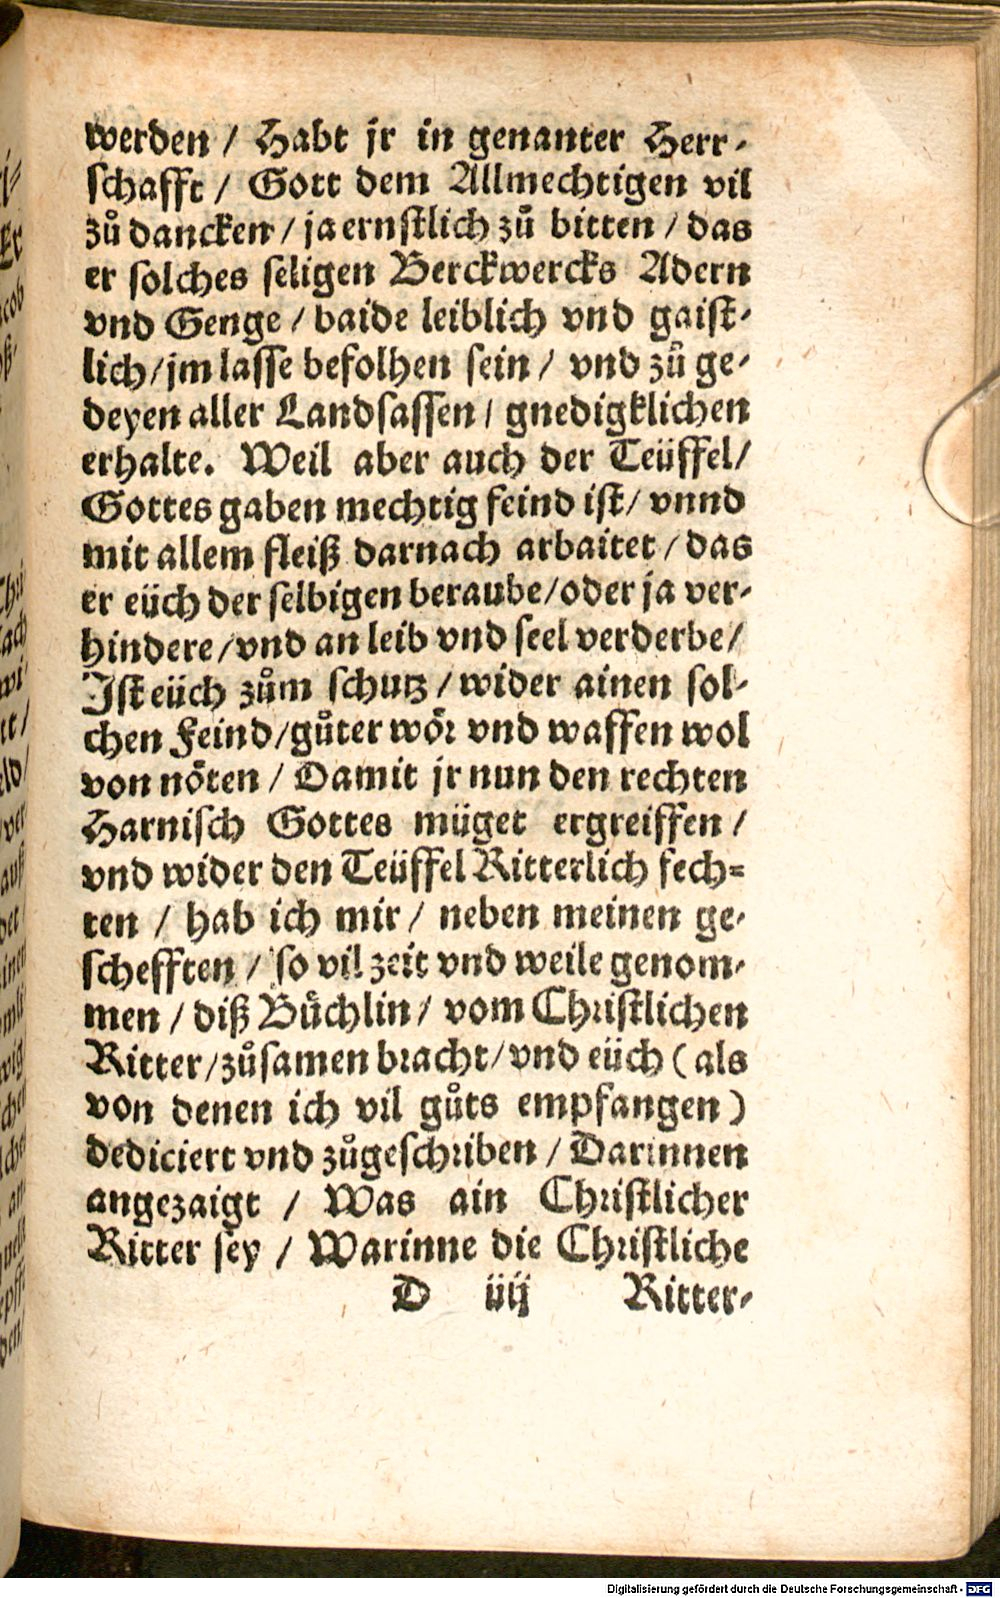 werden / Habt jr in genanter Herr-
schafft / Gott dem Allmechtigen vil
zů dancken / ja ernstlich zů bitten / das
er solches seligen Berckwercks Adern
vnd Genge / baide leiblich vnd gaist-
lich / jm lasse befolhen sein / vnd zů ge-
deyen aller Landsassen / gnedigklichen
erhalte. Weil aber auch der Teüffel /
Gottes gaben mechtig feind ist / vnnd
mit allem fleiß darnach arbaitet / das
er eüch der selbigen beraube / oder ja ver-
hindere / vnd an leib vnd seel verderbe /
Ist eüch zům schutz / wider ainen sol-
chen Feind / gůter wör vnd waffen wol
von nöten / Damit jr nun den rechten
Harnisch Gottes müget ergreiffen /
vnd wider den Teüffel Ritterlich fech-
ten / hab ich mir / neben meinen ge-
schefften / so vil zeit vnd weile genom-
men / diß Büchlin / vom Christlichen
Ritter / zůsamen bracht / vnd eüch ( als
von denen ich vil gůts empfangen )
dediciert vnd zůgeschriben / Darinnen
angezaigt / Was ain Christlicher
Ritter sey / Warinne die Christliche
D iiij Ritter-
Digitalisierung gefördert durch die Deutsche Forschungsgemeinschaft - DFG